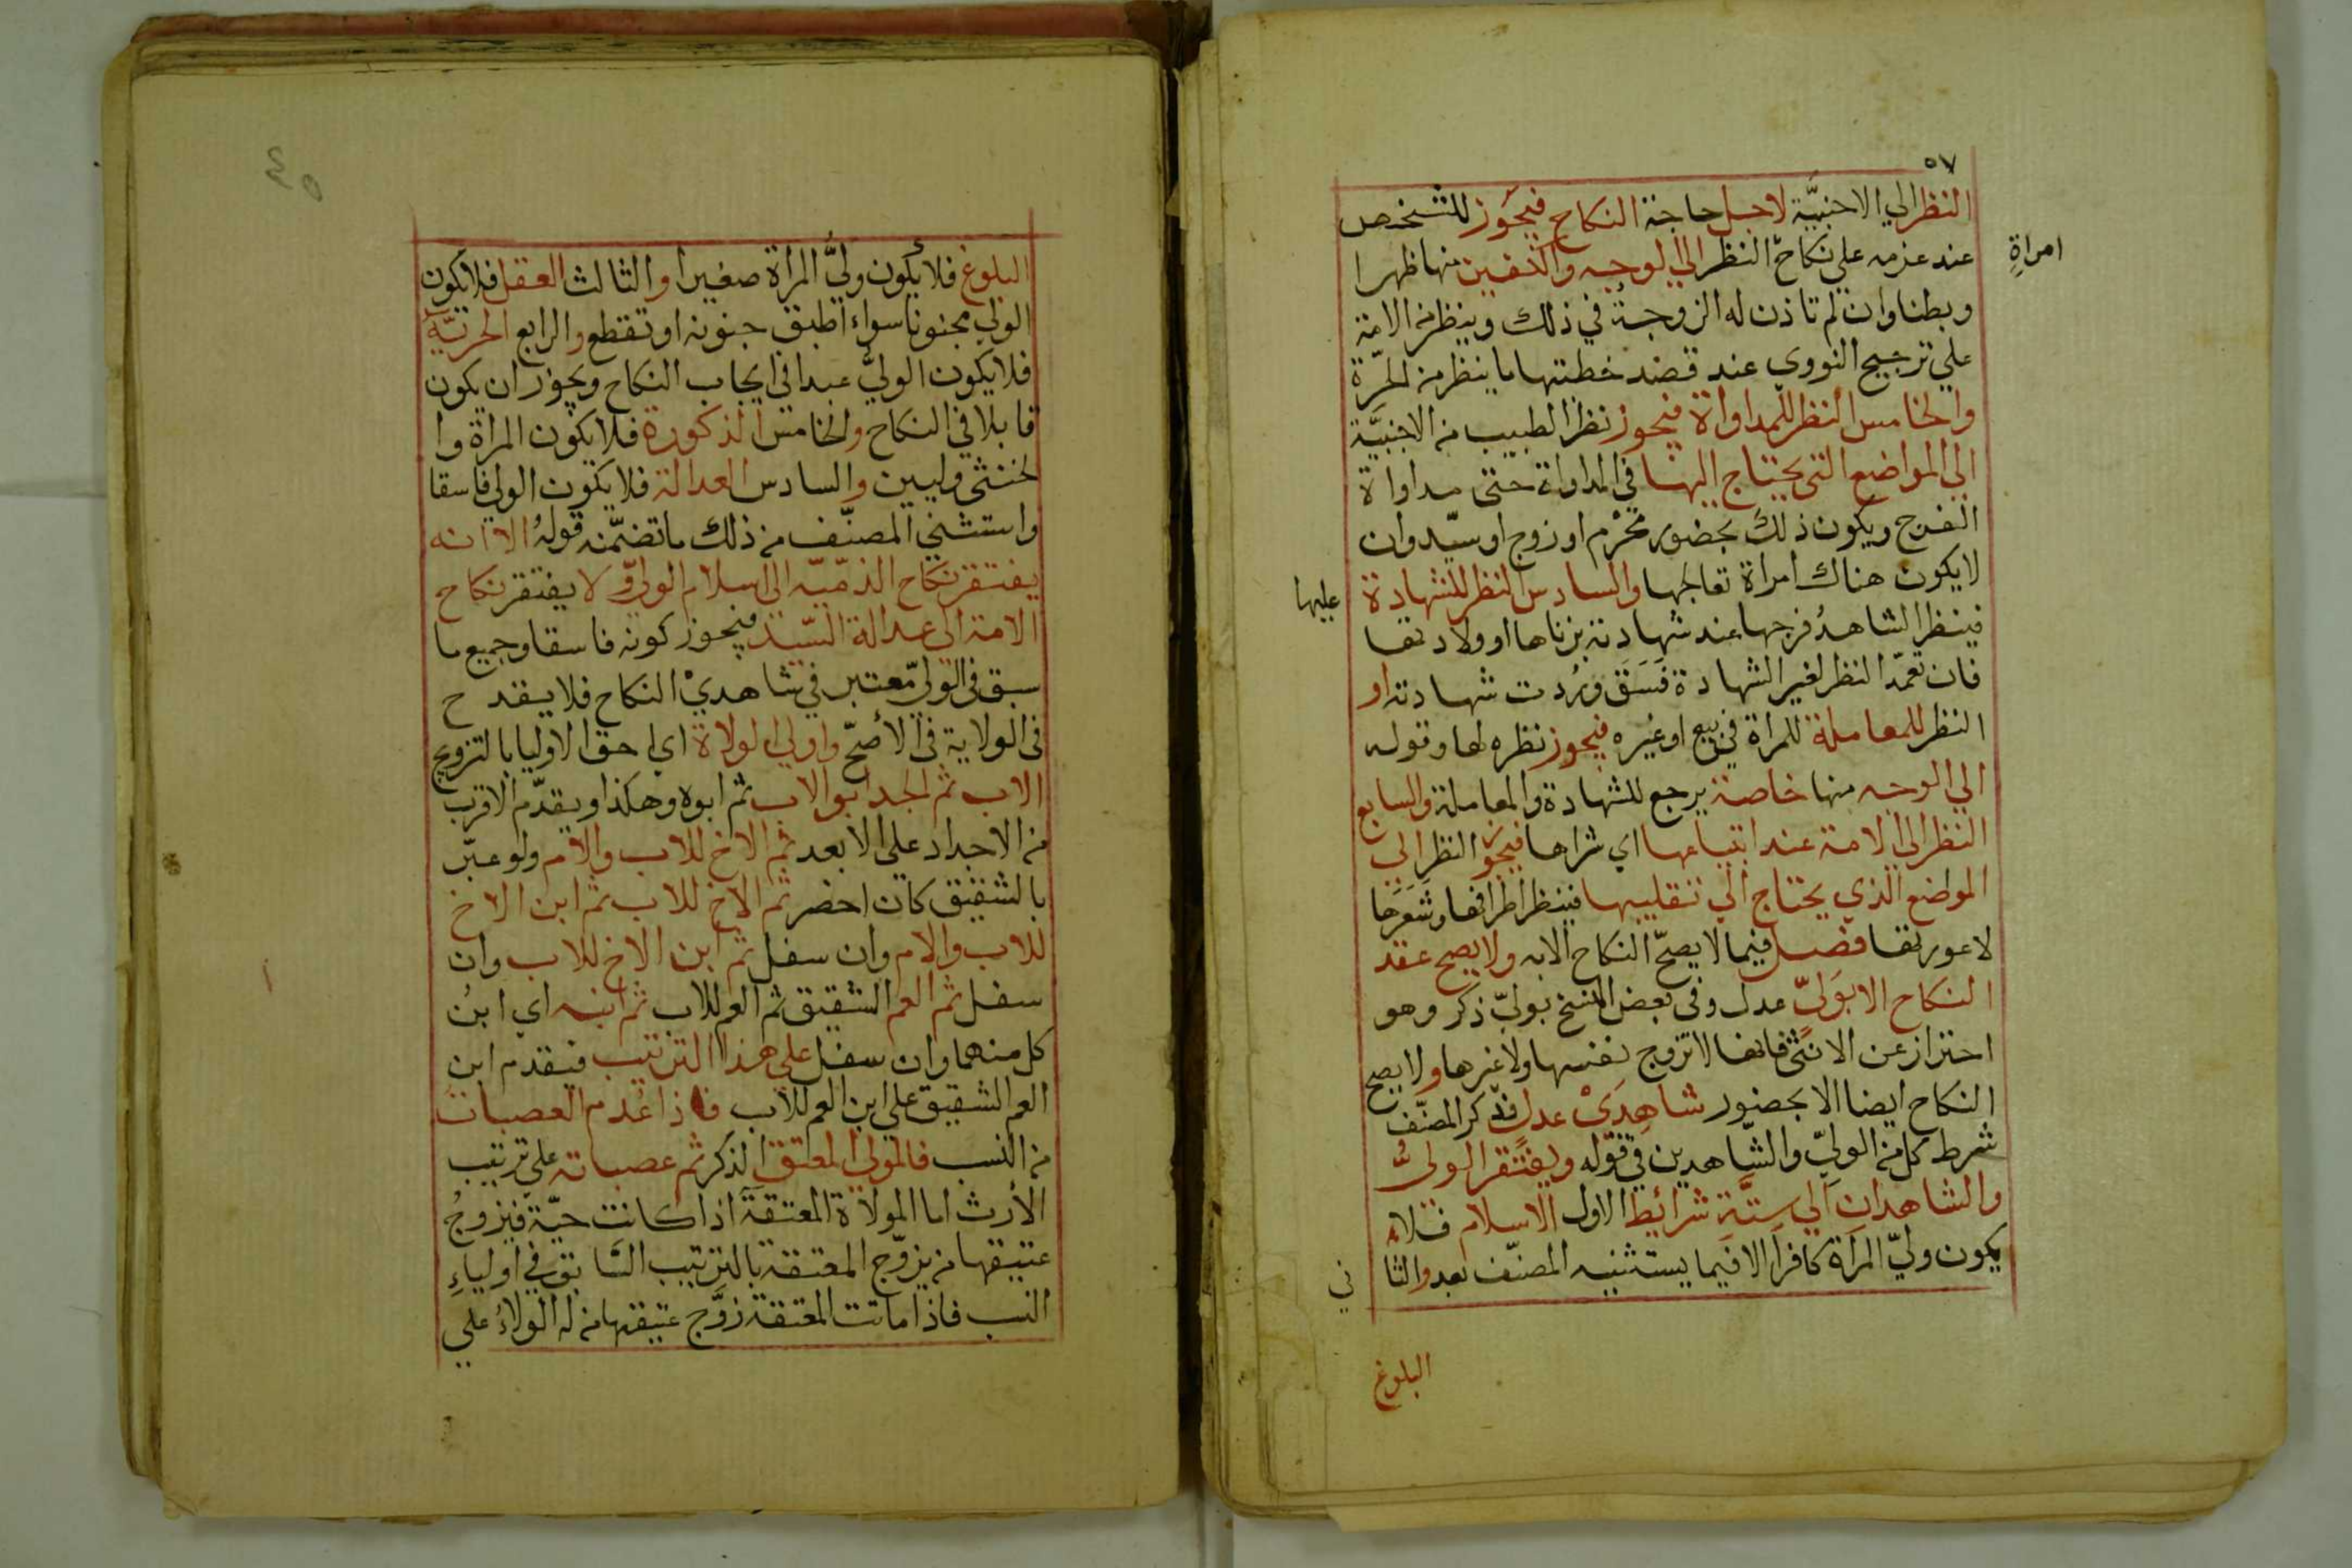 ٥٧
النظر الي الاجنبيَّة لاجل حاجة النكاح فيجوز للشخص
عند عزمه علي نكاح النظر الي الوجه والكفين منها ظهرا
امراةٍ
وبطنا وان لم تاذن له الزوجة في ذلك وينظر من الامة
علي ترجيح النووي عند قصد خطبتها ما ينظر من الحرّة
والخامس النظر للمداواة فيجوز نظر الطبيب من الاجنبيَّة
الي المواضع التي يحتاج اليها في المداواة حتى مداواة
الفرج ويكون ذلك بحضور محْرم او زوج او سيّد وان
لا يكون هناك امراة تعالجها والسادس النظر للشهادة
عليها
فينظر الشاهدُ فرجها عند شهادته بزناها او ولادتها
فان تعمّد النظر لغير الشهادة فَسَقَ ورُدت شهادته او
النظر للمعاملة للمراة في بيع او غيره فيجوز نظره لها وقوله
الي الوجه منها خاصة يرجع للشهادة والمعاملة والسابع
النظر الي الامة عند ابتياعها اي شراها فيجوز النظر الي
المواضع الذي يحتاج الي تقليبها فينظر اطرافها وشَعَرها
لا عورتها فصل فيما لا يصحّ النكاح الا به ولا يصح عقد
النكاح الا بوَليّ عدل وفي بعض النسخ بوليّ ذكر وهو
احتراز عن الانثى فانها لا تزوج نفسها ولا غيرها ولا يصح
النكاح ايضا الا بحضور شاهِدَيْ عدلٍ فذكر المصنّف
شرط كل من الوليّ والشاهدين في قوله ويفتقر الوليُّ
والشاهدان الي ستَّةِ شرائط الاول الاسلام فلا
يكون وليّ المرَاة كافرًا الا فيما يستثنيه المصنّف بعد والثا
ني
البلوغ
٤٥
البلوغ فلا يكون وليُّ المرأة صغيرا والثالث العقل فلا يكون
الولي مجنونا سواء اطبق جنونه او تقطع والرابع الحريّة
فلا يكون الوليُّ عبدا في ايجاب النكاح ويجوز ان يكون
قابلا في النكاح والخامس الذكورة فلا يكون المراة وا
لخنثى وليين والسادس العدالة فلا يكون الولي فاسقا
واستثني المصنّف من ذلك ما تضمّنه قولهُ الا انه
يفتقر نكاح الذمّيّة الي اسلام الوليّ ولا يفتقر نكاح
الامة الي عدالة السّيد فيجوز كونه فاسقا وجميع ما
سبق في الوليّ معتبر في شاهديْ النكاح فلا يقدح
في الولاية في الأصحّ واولي الولاة اي احق الاوليا بالتزويج
الاب ثم الجد ابو الاب ثم ابوه وهكذا ويقدّم الاقرب
من الاجداد علي الابعد ثم الاخ للاب والام ولو عبّر
بالشقيق كان اخصر ثم الاخ للاب ثم ابن الاخ
للاب والام وان سفل ثم ابن الاخ للاب وان
سفل ثم العم الشقيق ثم العم للاب ثم ابنه اي ابنُ
كل منهما وان سفل علي هذا الترتيب فيقدم ابن
العم الشقيق علي ابن العم للاب فاذا عُدم العصبات
من النسب فالمولي المعتق الذكر ثم عصباته علي ترتيب
الأرث اما المولاة المعتقة اذا كانت حيّة فيزوجُ
عتيقها من يزوّج المعتقة بالترتيب السَّابق في اولياءِ
النسب فاذا ماتت المعتقة زوَّج عتيقها من له الولاءُ علي